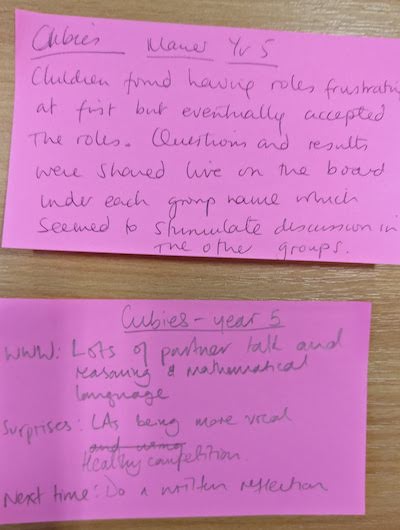 Cubies Maner Yr 5
Children found having roles frustrati
at first but eventually accepted
The roles. Questions and results
were shared live on the board
under each group name which
seemed to stimulate discussion in
the other groups.
Cubies - year 5
WWW: Lots of partner talk and
reasoning & mathematical
language
Surprises: LAs being more vocal
and using
Healthy competition.
Next time: Do a written reflection